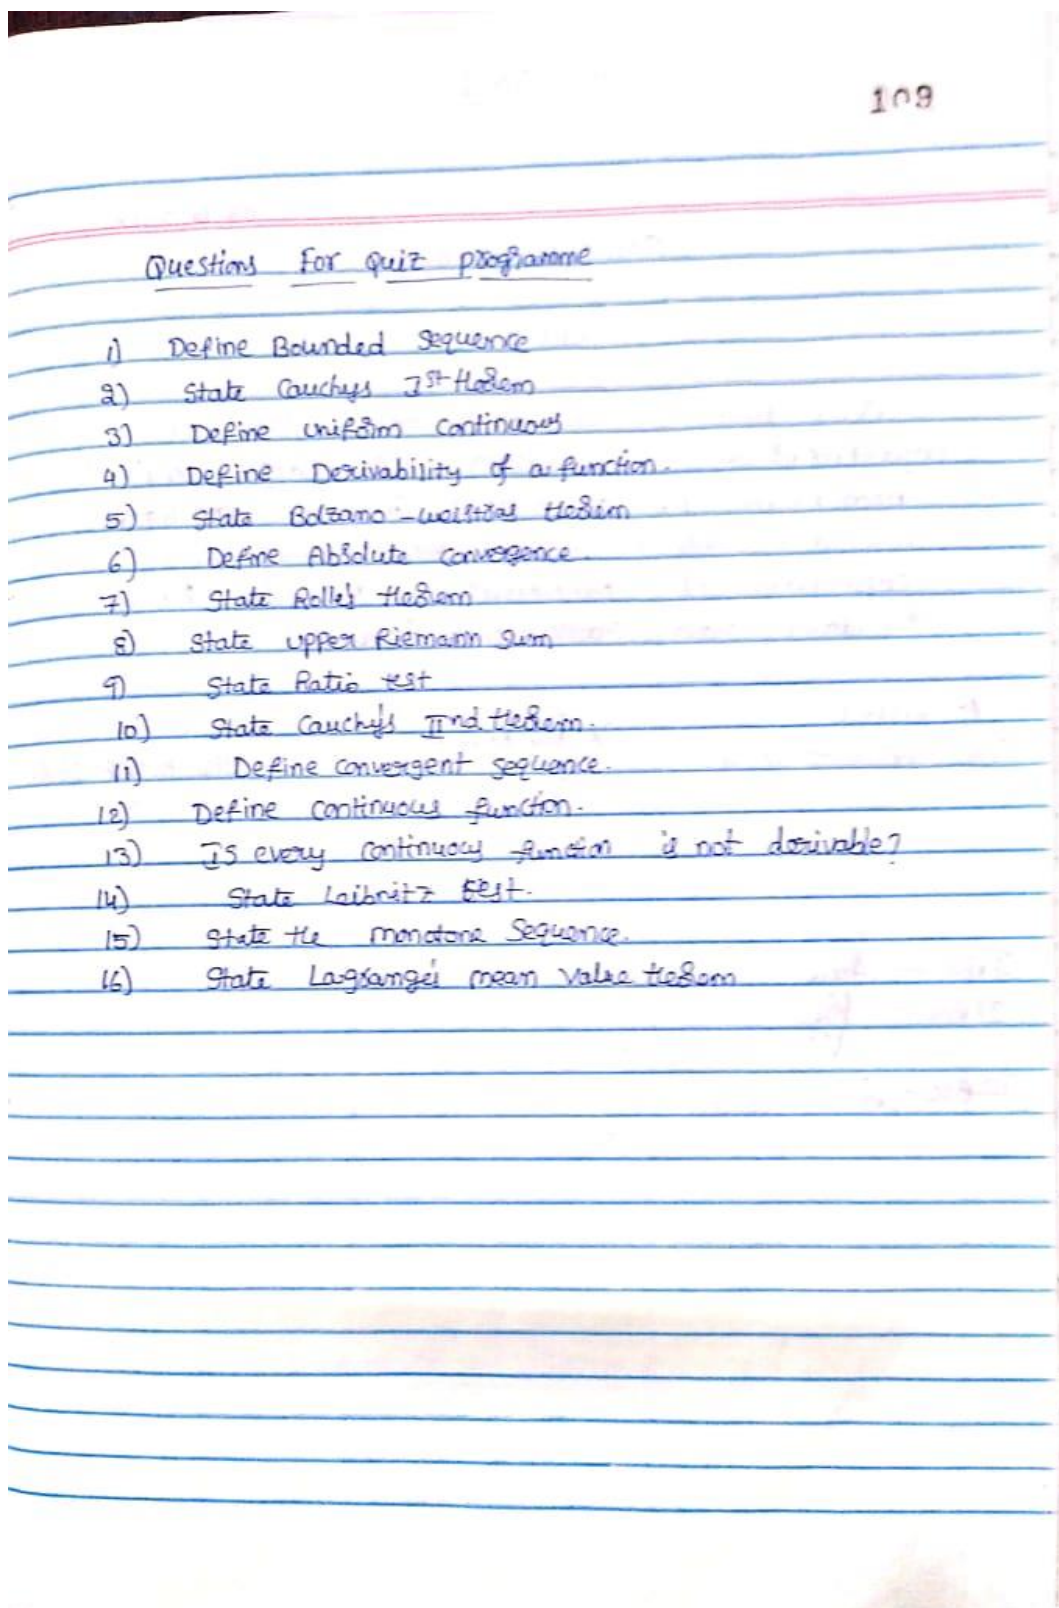 109
Questions For Quiz programme
1) Define Bounded Sequence
2) State Cauchys Ist theorem
3) Define uniform continuous
4) Define Derivability of a function.
5) State Bolzano-weistras theorim
6) Define Absolute convergence.
7) State Rolle's theorem
8) State upper Riemann sum
9) State Ratio test
10) State Cauchy's IInd theorem.
11) Define convergent sequence.
12) Define continuous function.
13) Is every continuous function is not derivable?
14) State Leibnitz test.
15) State the monotone Sequence.
16) State Lagrange's mean value theorem